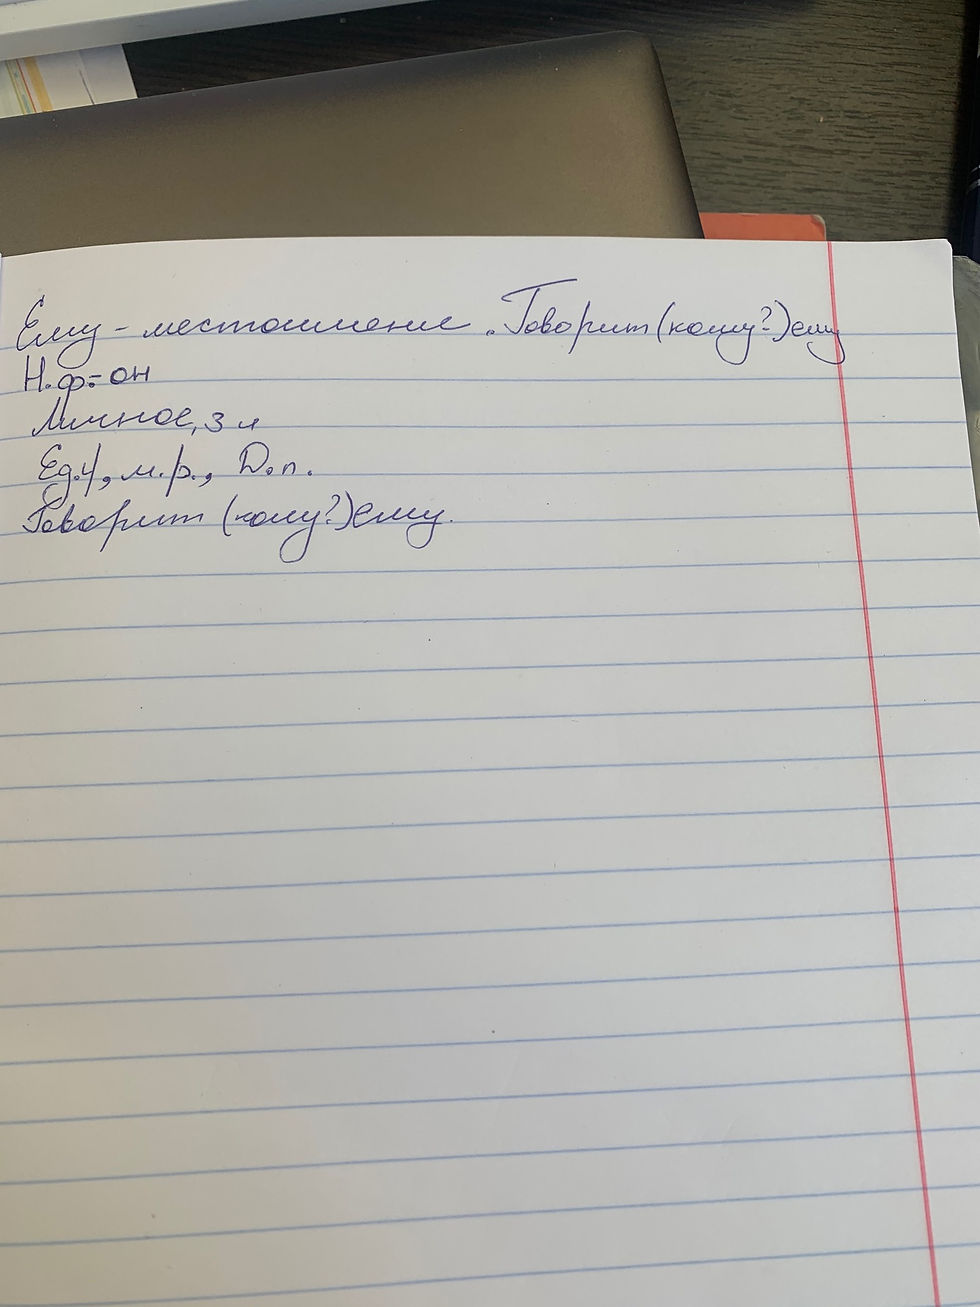 Ему - местоимение. Говорит (кому?) ему
Н.ф.- он
Личное, 3 л
Ед.ч, м.р., Д.п.
Говорит (кому?) ему.